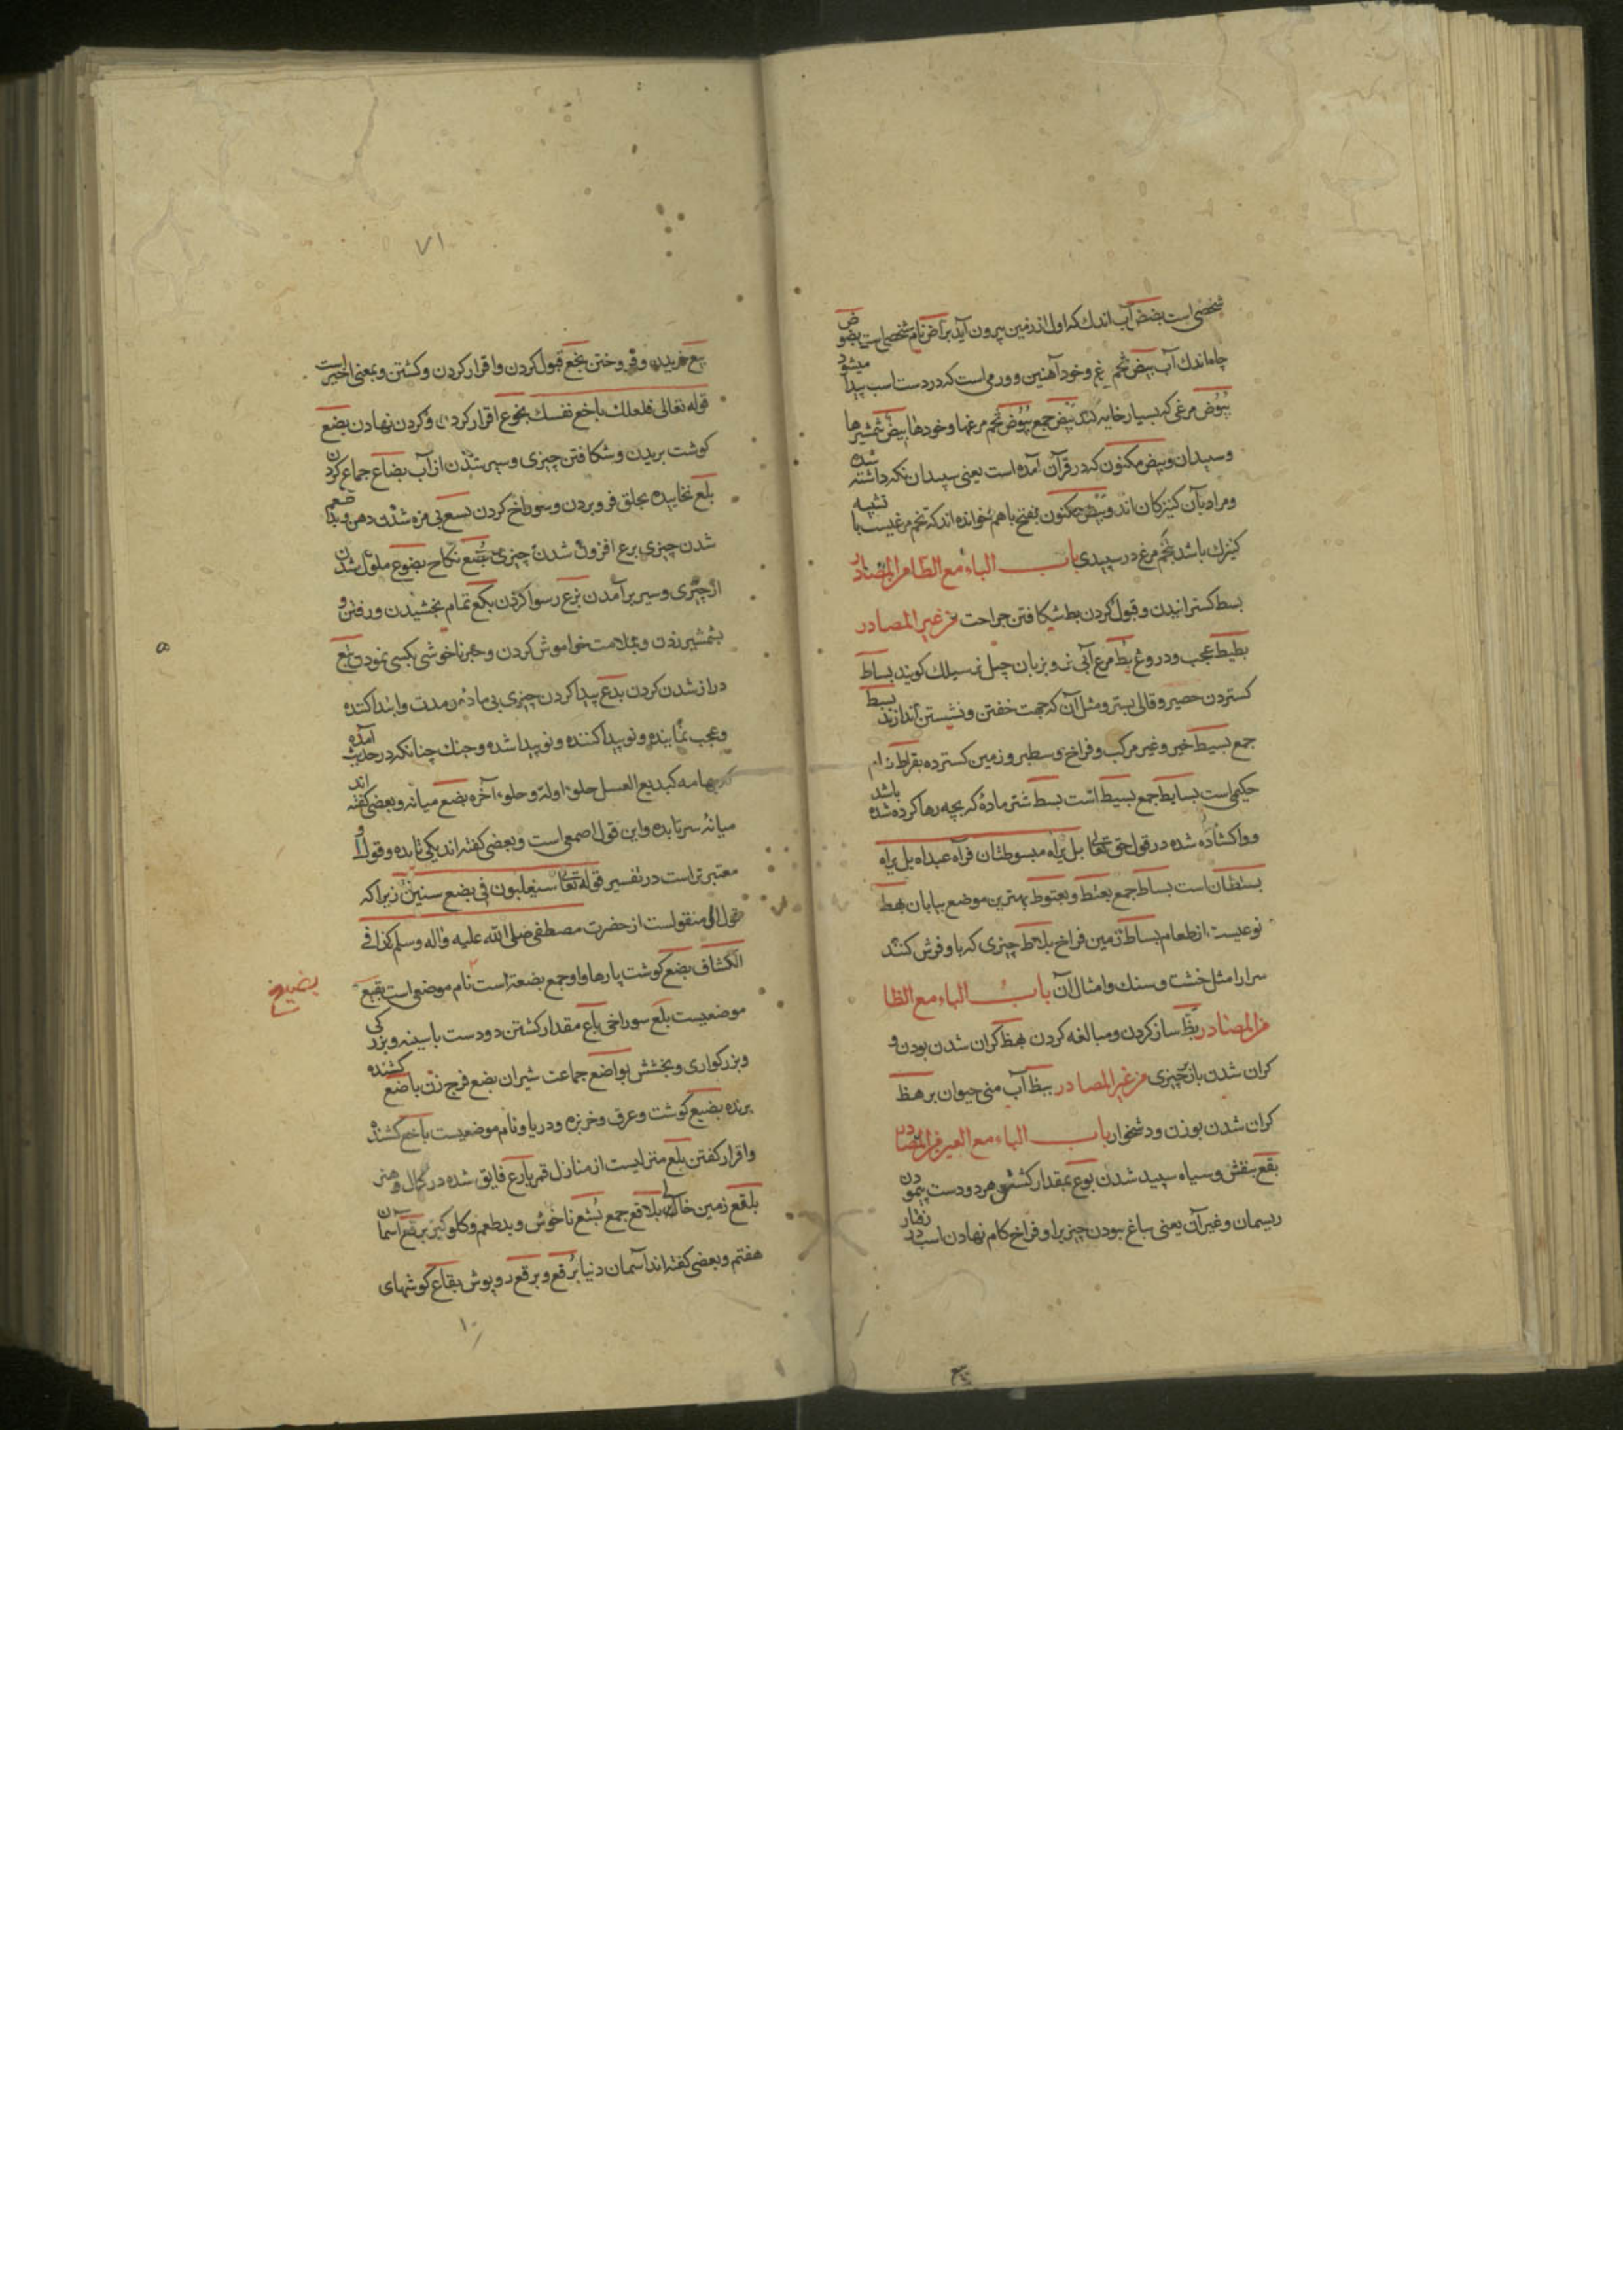 شخصی است بضض آب اندك که اول از زمین بیرون آید براض نام شخصی است بضوض
چاه اندك آب بیض تخم مرغ و خود آهنین و ورمی است که در دست اسب پیدا میشود
بیوض مرغی که بسیار خایه کند بیض جمع بیوض تخم مرغها و خودها بیض شمشیرها
و سپیدان و بیض مکنون که در قرآن آمده است یعنی سپیدان نکه داشته شده
و مراد بآن کنیزکان اند و بیض مکنون بفتح با هم خوانده اند که تخم مرغیست با تشبیه
کنیزك باشد بتخم مرغ در سپیدی باب الباء مع الطاء من المصادر
بسط کسترانیدن و قبول کردن بط شکافتن جراحت من غیر المصادر
بطیط عجب و دروغ بط مرغ آبی نر و بزبان چیل نر سیلك کویند بساط
کستردن حصیر و قالی بستر و مثل آن که جهت خفتن و نشستن اندازند بسیط
جمع بسیط خیر و غیر مرکب و فراخ و سطبر و زمین کسترده بقراط نام
حکیمی است بسایط جمع بسیط است بسط شتر مادۀ که بچه رها کرده شده باشد
و واکشاده شده در قول حق تعالی بل یداه مبسوطتان قرآه عبداه بل یداه
بسطان است بساط جمع بعثط و بعثوط بهترین موضع بیابان بهط
نوعیست از طعام بساط زمین فراخ بلاط چیزی که باو فرش کنند
سرا را مثل خشت و سنك و امثال آن باب الباء مع الظا
من المصادر بظ ساز کردن و مبالغه کردن بهظ کران شدن بودن و
کران شدن باز چیزی من غیر المصادر بیظ آب منی حیوان برهظ
کران شدن بوزن و دشخوار باب الباء مع العین من المصادر
بقع بنقش و سیاه سپید شدن بوع بمقدار کشش هر دو دست پیمودن
ریسمان و غیر آن یعنی بباغ بیودن چیزیرا و فراخ کام نهادن اسب در رفتار
بیع
۷۱
بیع خریدن و فروختن بخع قبول کردن و اقرار کردن و کشتن و بمعنی اخیر است
قوله تعالی فلعلك باخع نفسك بخوع اقرار کردن و کردن نهادن بضع
کوشت بریدن و شکافتن چیزی و سیر شدن از آب بضاع جماع کردن
بلع نخاییده بحلق فرو بردن و سوراخ کردن بسع بی مزه شدن دهن و بد طعم
شدن چیزی برع افزون شدن چیزی بضع نکاح بضوع ملول شدن
از چیزی و سیر برآمدن بزع رسوا کردن بکع تمام بخشیدن و رفتن و
بشمشیر زدن و بملامت خواموش کردن و خبر ناخوشی بکسی نمودن بتع
دراز شدن کردن بدع پیدا کردن چیزی بی ماده و مدت و ابتدا کنده
و عجب نماینده و نو پیدا کننده و نو پیدا شده و جنك چنانکه در حدیث آمده
تهامه کبدیع العسل حلو اوله و حلو آخره بضع میانه و بعضی کفته اند
میانۀ سه تا ده و این قول اصمعی است و بعضی کفته اند یکی تا ده و قول او
معتبر تر است در تفسیر قوله تعالی سیغلبون فی بضع سنین زیرا که
قول او منقولست از حضرت مصطفی صلی الله علیه واله وسلم کذا فی
الکشاف بضع کوشت پارها و او جمع بضعة است نام موضعی است بقیع
بضیع
موضعیست بلع سوراخی باع مقدار کشتن دو دست با سینه و بزرکی
و بزرکواری و بخشش بواضع جماعت شیران بضع فرج زن باضع کشنده
برنده بضیع کوشت و عرق و خربزه و دریا و نام موضعیست باخع کشنده
و اقرار کفتن بلع منزلیست از منازل قمر بارع فایق شده در کمال و هنر
بلقع زمین خالی بلاقع جمع بشع ناخوش و بدطعم و کلوکیر برقع آسمان
هفتم و بعضی کفته اند آسمان دنیا برقع و برقع روپوش بقاع کوشهای
۱۰